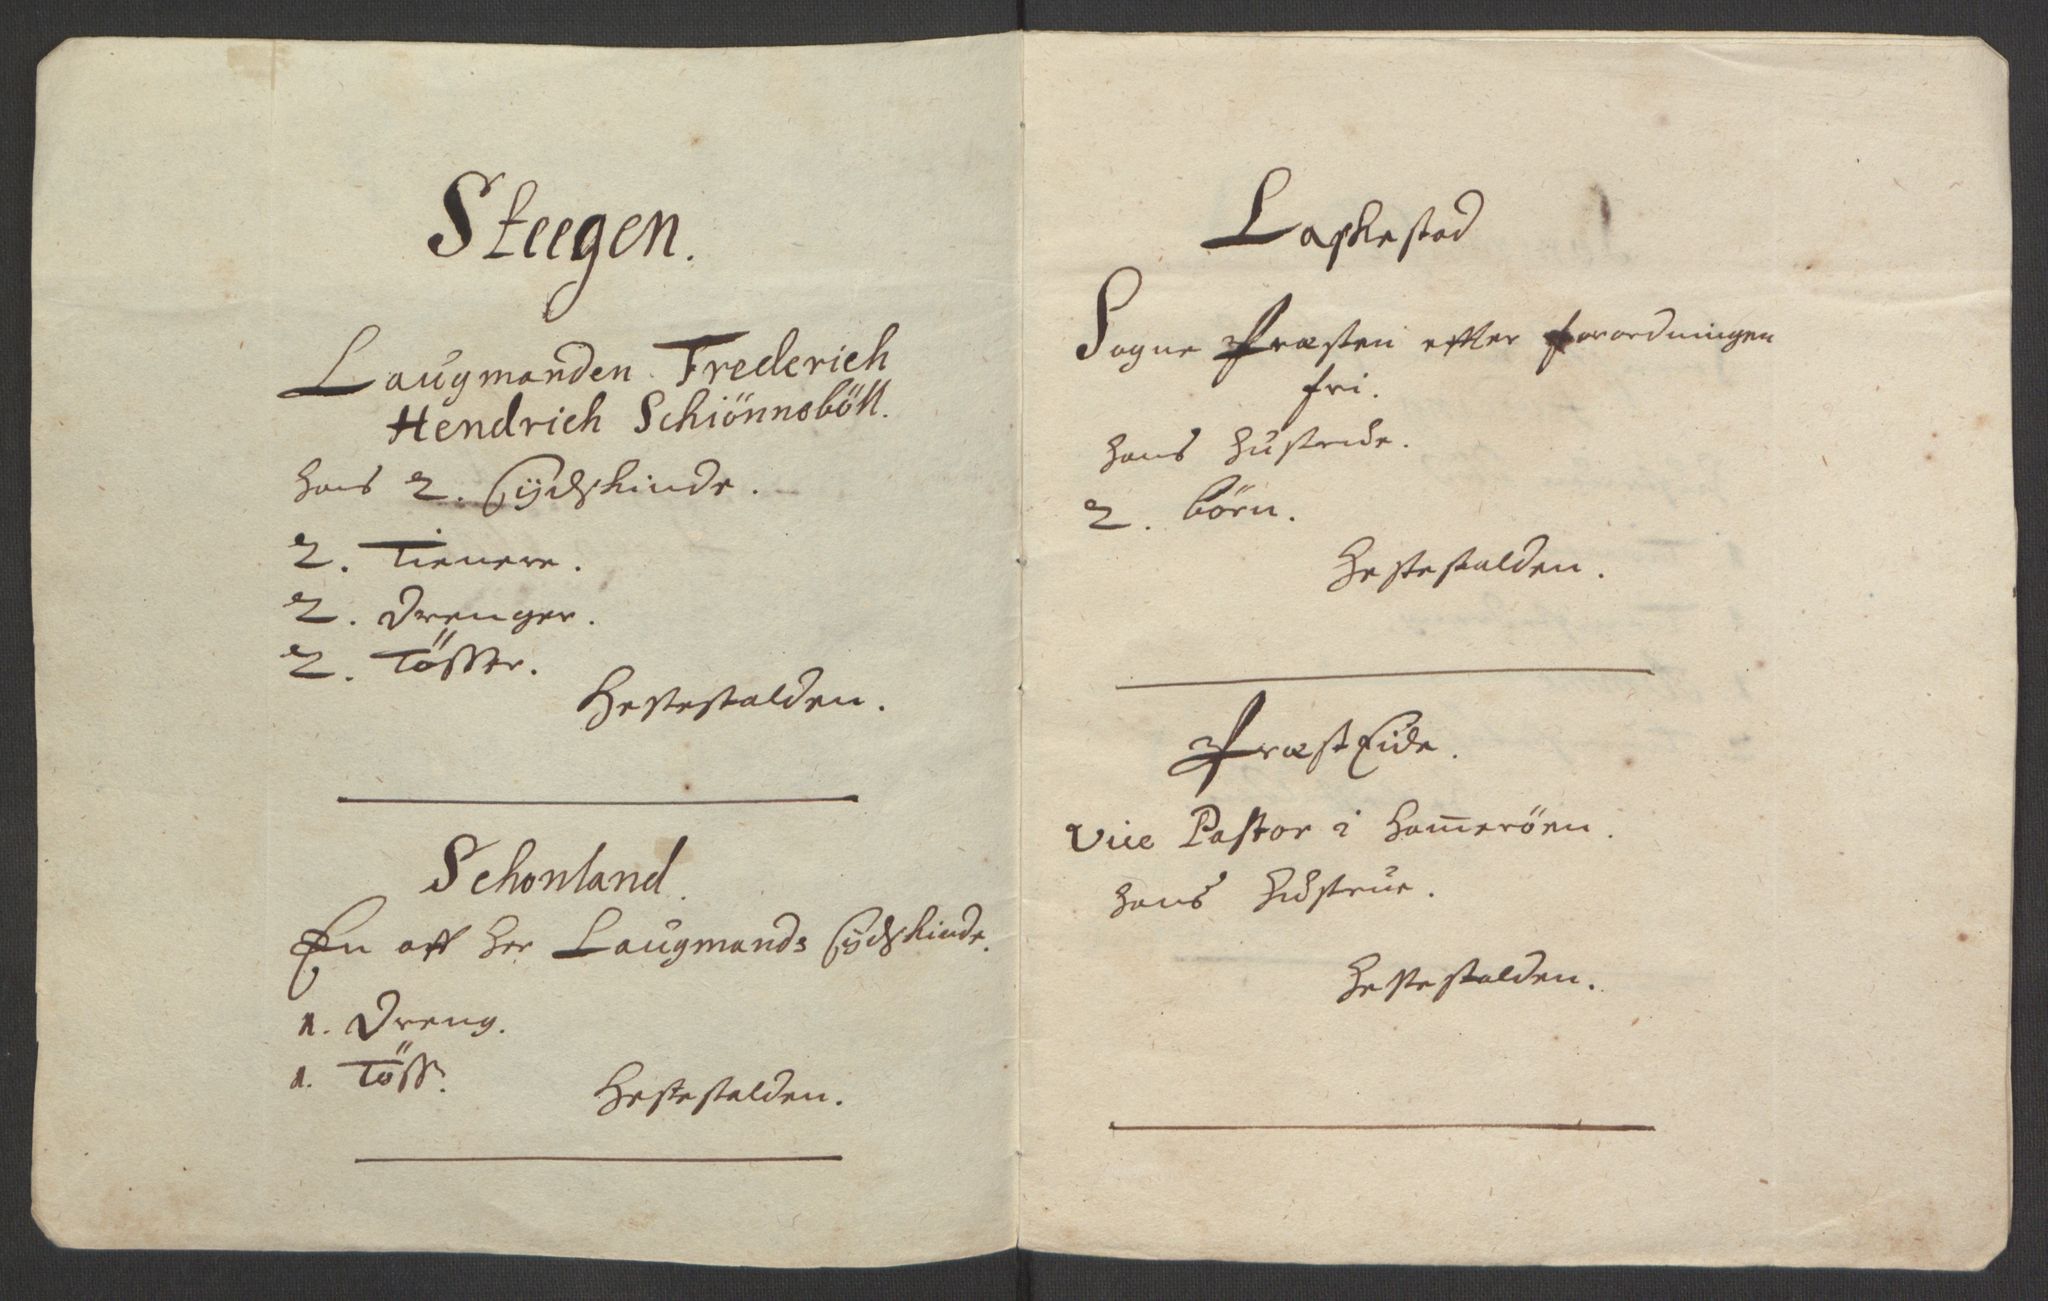 Steegen.
Laugmanden Frederich
Hendrich Schiönneböll.
hans 2. Sydskinde.
2. Tienere.
2. Drenger.
2. Tösser.
Hestestalden.
Schonland.
En aff her Laugmands Sydskinde.
1. Dreng.
1. Töss.
Hestestalden.
Laskestad
Sogne Præsten effter forordningen
fri.
hans Hustrue.
2. börn.
Hestestalden.
PræstEide.
Vice Pastor i Hameröen.
hans Hustrue.
Hestestalden.